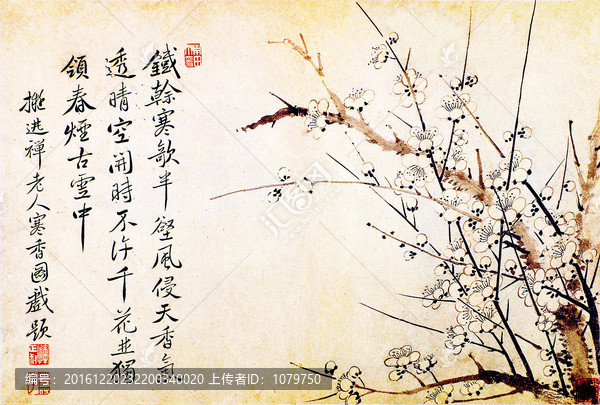 鐵榦寒欹半壑風侵天香氣
透晴空開時不許千花並獨
領春煙古雪中
擬逃禪老人寒香圖戲題
编号：20161220232200340020 上传者ID：1079750